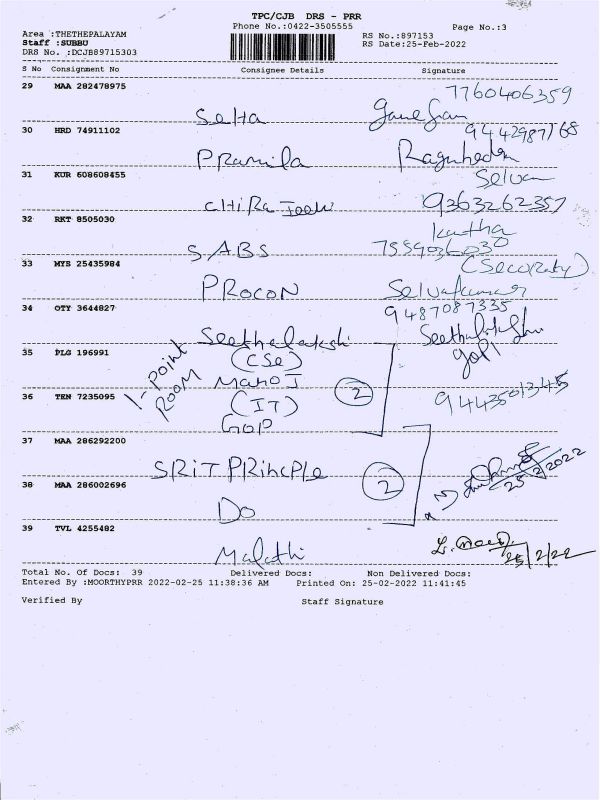 TPC/CJB DRS - PRR
Phone No.:0422-3505555
Page No.:3
Area :THETHEPALAYAM
Staff :SUBBU
DRS No. :DCJB89715303
RS No.:897153
RS Date:25-Feb-2022
S No Consignment No Consignee Details Signature
29 MAA 282478975
7760406359
Selta Ganesan
30 HRD 74911102
9442987168
Pramila
31 KUR 608608455
Selvan
9363262357
32 RKT 8505030
Kartha
SABS 7559036030
33 MYS 25435984
(Security)
PROCON Selvakumar
34 OTY 3644827
9487087335
Seethalakshi
35 PLG 196991
(CSE) gopi
1-Point Room
Mano J
36 TEN 7235095
(IT) 2 9443501345
GOP
37 MAA 286292200
SRIT PRinCPle 2 25/2/2022
38 MAA 286002696
Do
39 TVL 4255482
Malathi 25/2/22
Total No. Of Docs: 39 Delivered Docs: Non Delivered Docs:
Entered By :MOORTHYPRR 2022-02-25 11:38:36 AM Printed On: 25-02-2022 11:41:45
Verified By Staff Signature